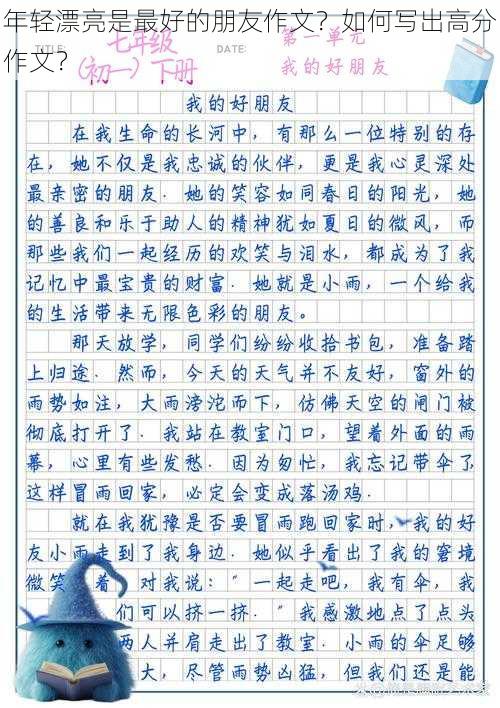 年轻漂亮是最好的朋友作文？如何写出高分
作文？
TITLE:
七年级
(初一)下册
DATE:
第一单元
我的好朋友
我的好朋友
在我生命的长河中，有那么一位特别的存
在，她不仅是我忠诚的伙伴，更是我心灵深处
最亲密的朋友．她的笑容如同春日的阳光，她
的善良和乐于助人的精神犹如夏日的微风，而
那些我们一起经历的欢笑与泪水，都成为了我
记忆中最宝贵的财富．她就是小雨，一个给我
的生活带来无限色彩的朋友。
那天放学，同学们纷纷收拾书包，准备踏
上归途．然而，今天的天气并不友好，窗外的
雨势如注，大雨滂沱而下，仿佛天空的闸门被
彻底打开了．我站在教室门口，望着外面的雨
幕，心里有些发愁．因为匆忙，我忘记带伞了，
这样冒雨回家，必定会变成落汤鸡．
就在我犹豫是否要冒雨跑回家时，我的好
友小雨走到了我身边．她似乎看出了我的窘境
微笑着 对我说：“一起走吧，我有伞，我
们可以挤一挤．”我感激地点了点头
两人并肩走出了教室．小雨的伞足够
大，尽管雨势凶猛，但我们还是能